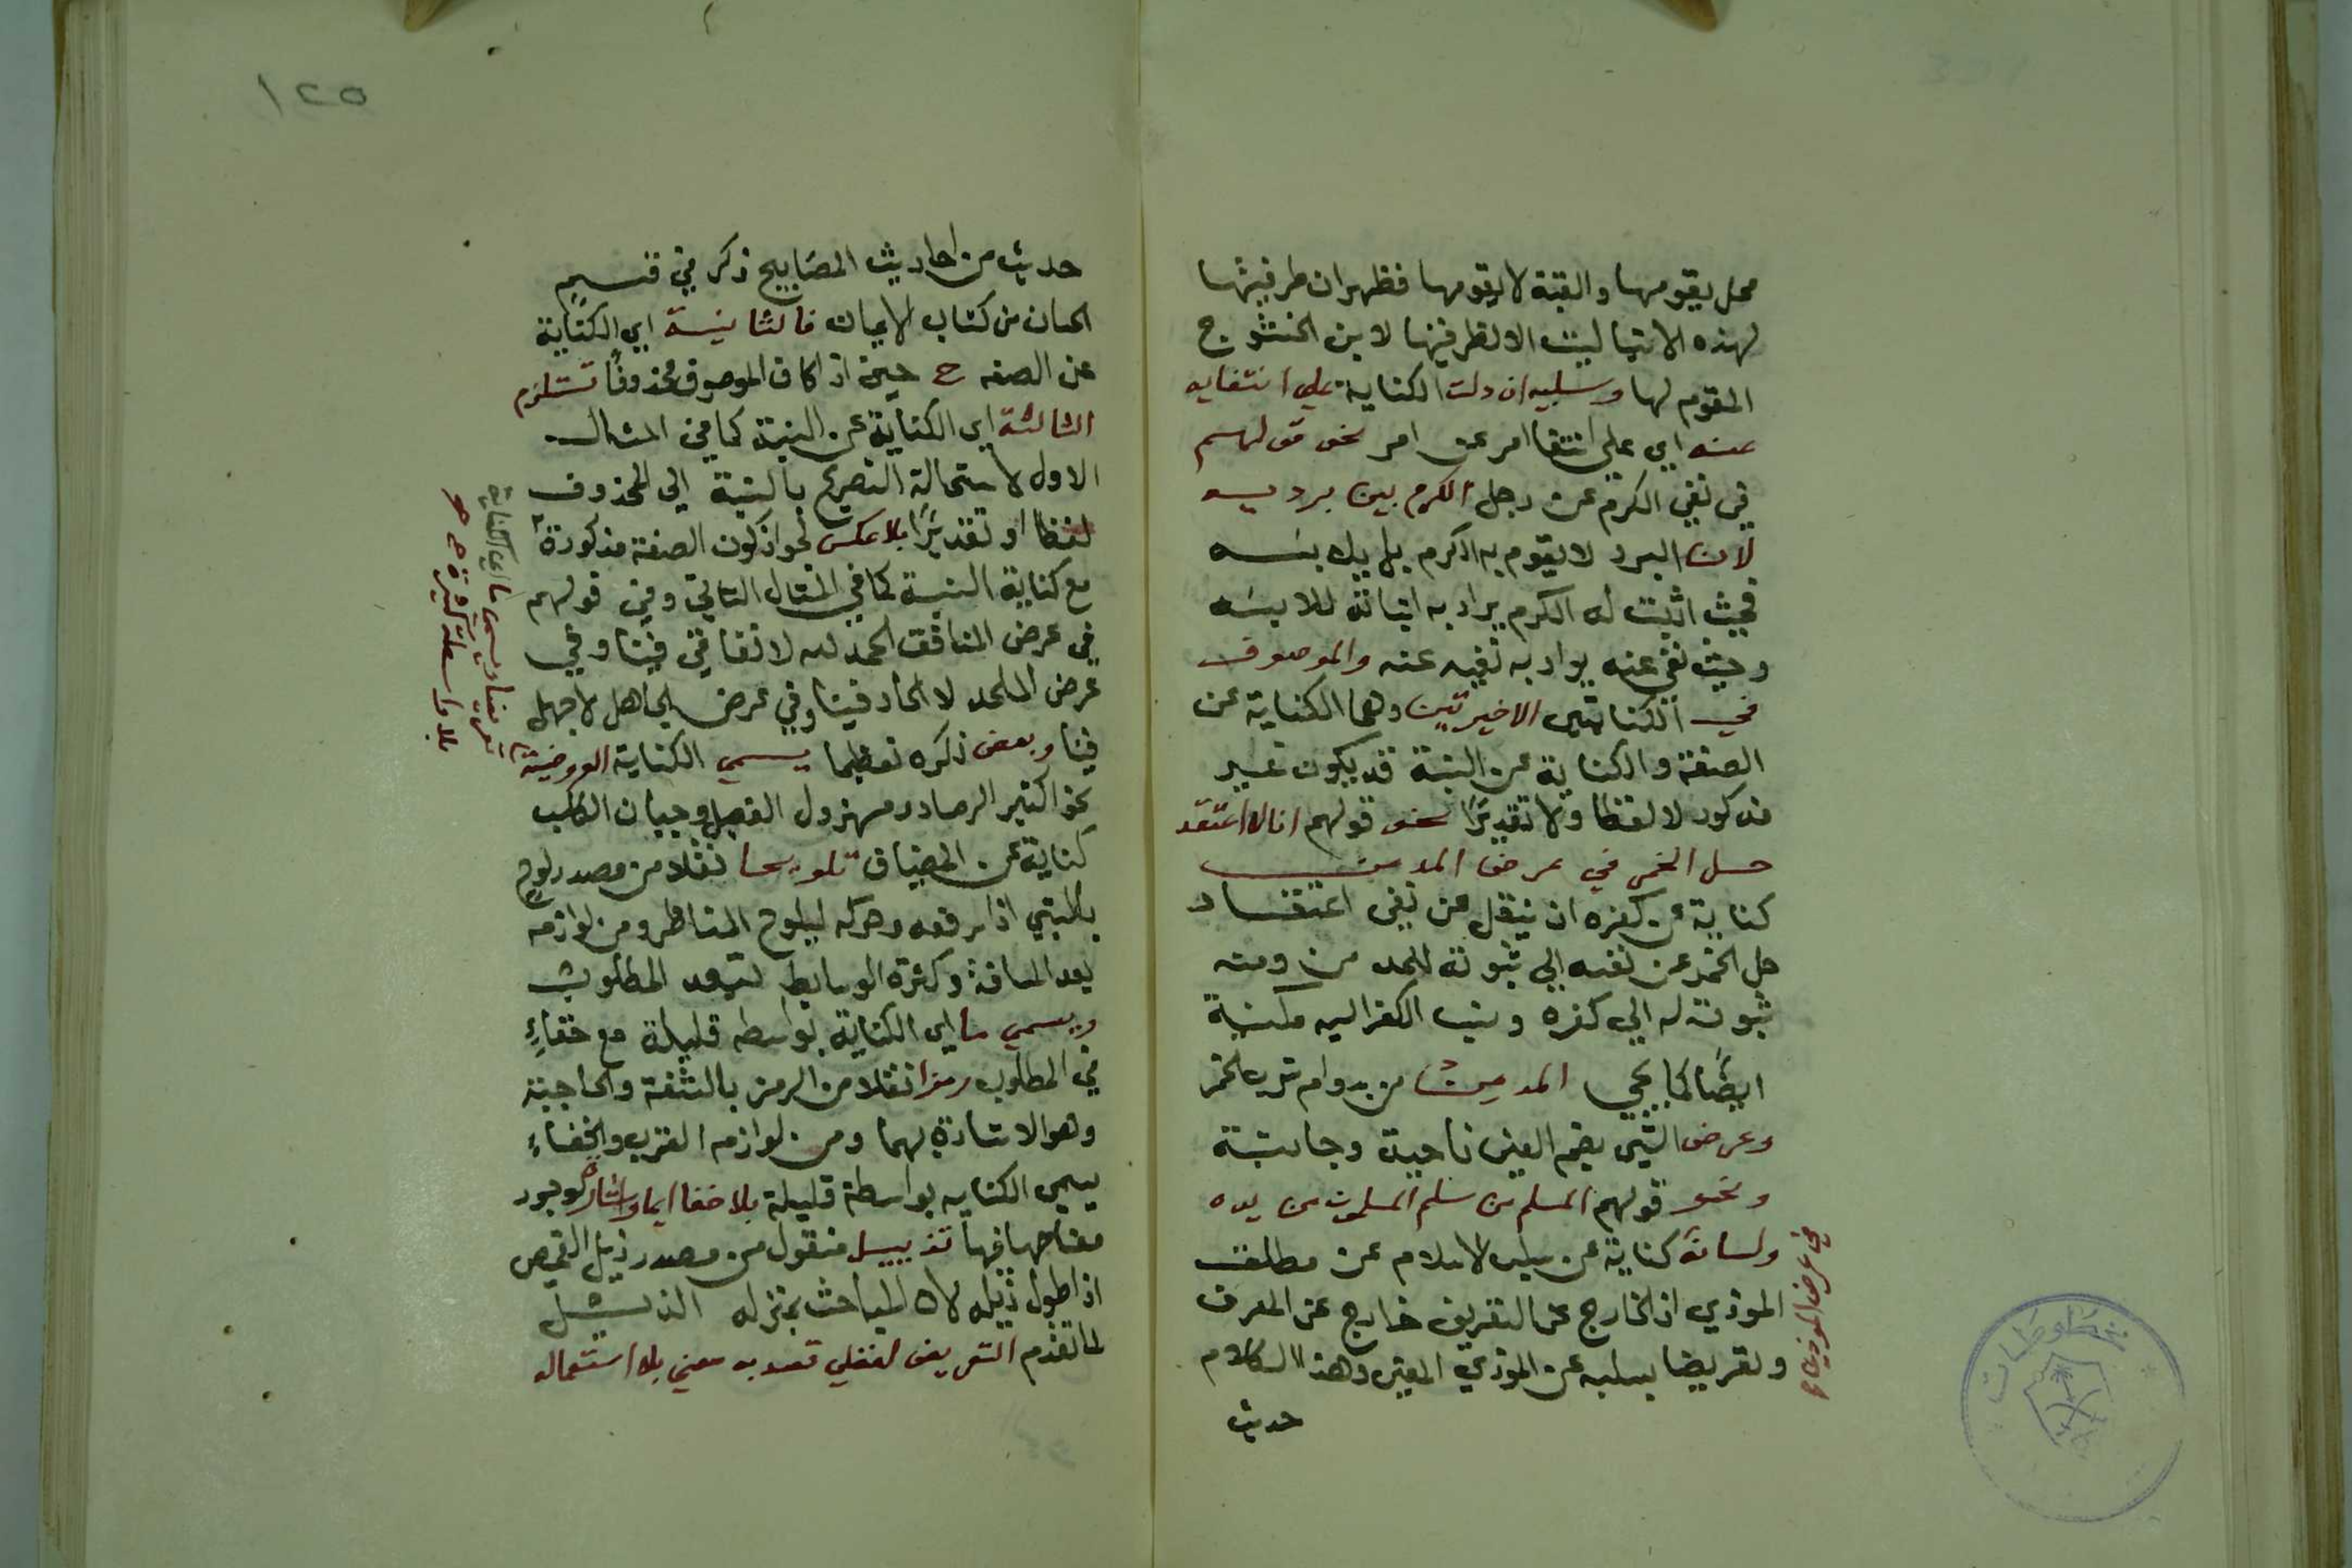 محل يقومها والقبة لا يقومها فظهر ان طرفيتها
لهذه الاشيا ليست الا لظرفيتها لابن الحشرج
المقوم لها وسلبيه ان دلت الكناية علي انتفايه
عنه اي علي انتفا امر عن امر نحو قولهم
في نفي الكرم عن رجل الكرم بين برديه
لان البرد لا يقوم به الكرم بل بلابسه
فحيث اثبت له الكرم يراد به اثباته للابسه
وحيث نفي عنه يراد به نفيه عنه والموصوف
في الكنايتين الاخيرتين وهما الكناية عن
الصفة والكناية عن النسبة قد يكون غير
مذكور لا لفظا ولا تقديرًا نحو قولهم انا لا اعتقد
حل الخمر في عرض المدمن
كناية عن كفره ان ينقل عن نفي اعتقاد
حل الخمر عن نفسه الي ثبوته للمدمن ومنه
ثبوته له الي كفره ونسب الكفر اليه مكنية
ايضًا كما يجي المدمن من يداوم شرب الخمر
وعرض الشي بضم العين ناحية وجانبه
ونحو قولهم المسلم من سلم المسلمون من يده
ولسانه كناية عن سلب الاسلام عن مطلق
الموذي اذ الخارج عن التعريف خارج عن المعرف
وتعريضا بسلبه عن الموذي المعين وهذا الكلام
حديث
في عرض الموذي
مخطوطات
١٢٥
حديث من احاديث المصابيح ذكر في قسم
الحسان من كتاب الايمان فالثانية اي الكناية
عن الصفه ح حين اذ كان الموصوف محذوفًا تستلزم
الثالثة اي الكناية عن النسبة كما في المثال
الاول لاستحالة التصريح بالنسبة الي المحذوف
لفظا او تقديرًا بلا عكس لجواز كون الصفة مذكورة
مع كناية النسبة كما في المثال الثاني وفي قولهم
في عرض المنافق الحمد لله لا نفاق فينا وفي
عرض الملحد لا الحاد فينا وفي عرض الجاهل لا جهل
فينا وبعض ذكره تعظيما يسمي الكناية العروضية
نحو كثير الرماد ومهزول الفصيل وجبان الكلب
كناية عن المضياف تلويحا نقلا من مصدر لوح
بالشي اذا رفعه وحركه ليلوح للناظر ومن لوازمه
بعد المسافة وكثرة الوسايط لتبعد المطلوب
ويسمي ما اي الكناية بواسطه قليلة مع خفاءٍ
في المطلوب رمزا نقلا من الرمز بالشفة والحاجبة
وهو الاشارة بهما ومن لوازمه القرب والخفاء
يسمي الكنايه بواسطة قليلة بلا خفا ايما واشارة لوجود
معناهما فيها تذييل منقول من مصدر ذيل القميص
اذا طول ذيله لان المباحث بمنزله الذيل
لما تقدم التعريض لفظي قصد به معني بلا استعماله